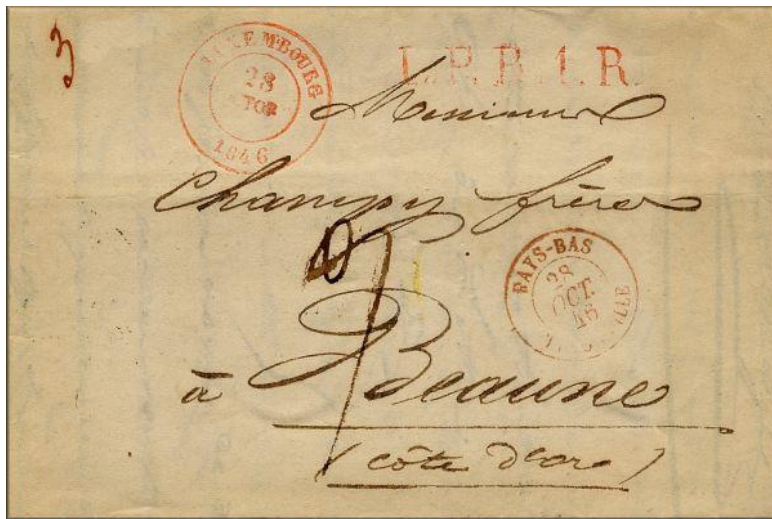 3
LUXEMBOURG
28
TOR
1846
L.P.B.1.R.
Messieurs
Champy frères
PAYS-BAS
28
OCT.
46
à Beaune
(côte d'or)